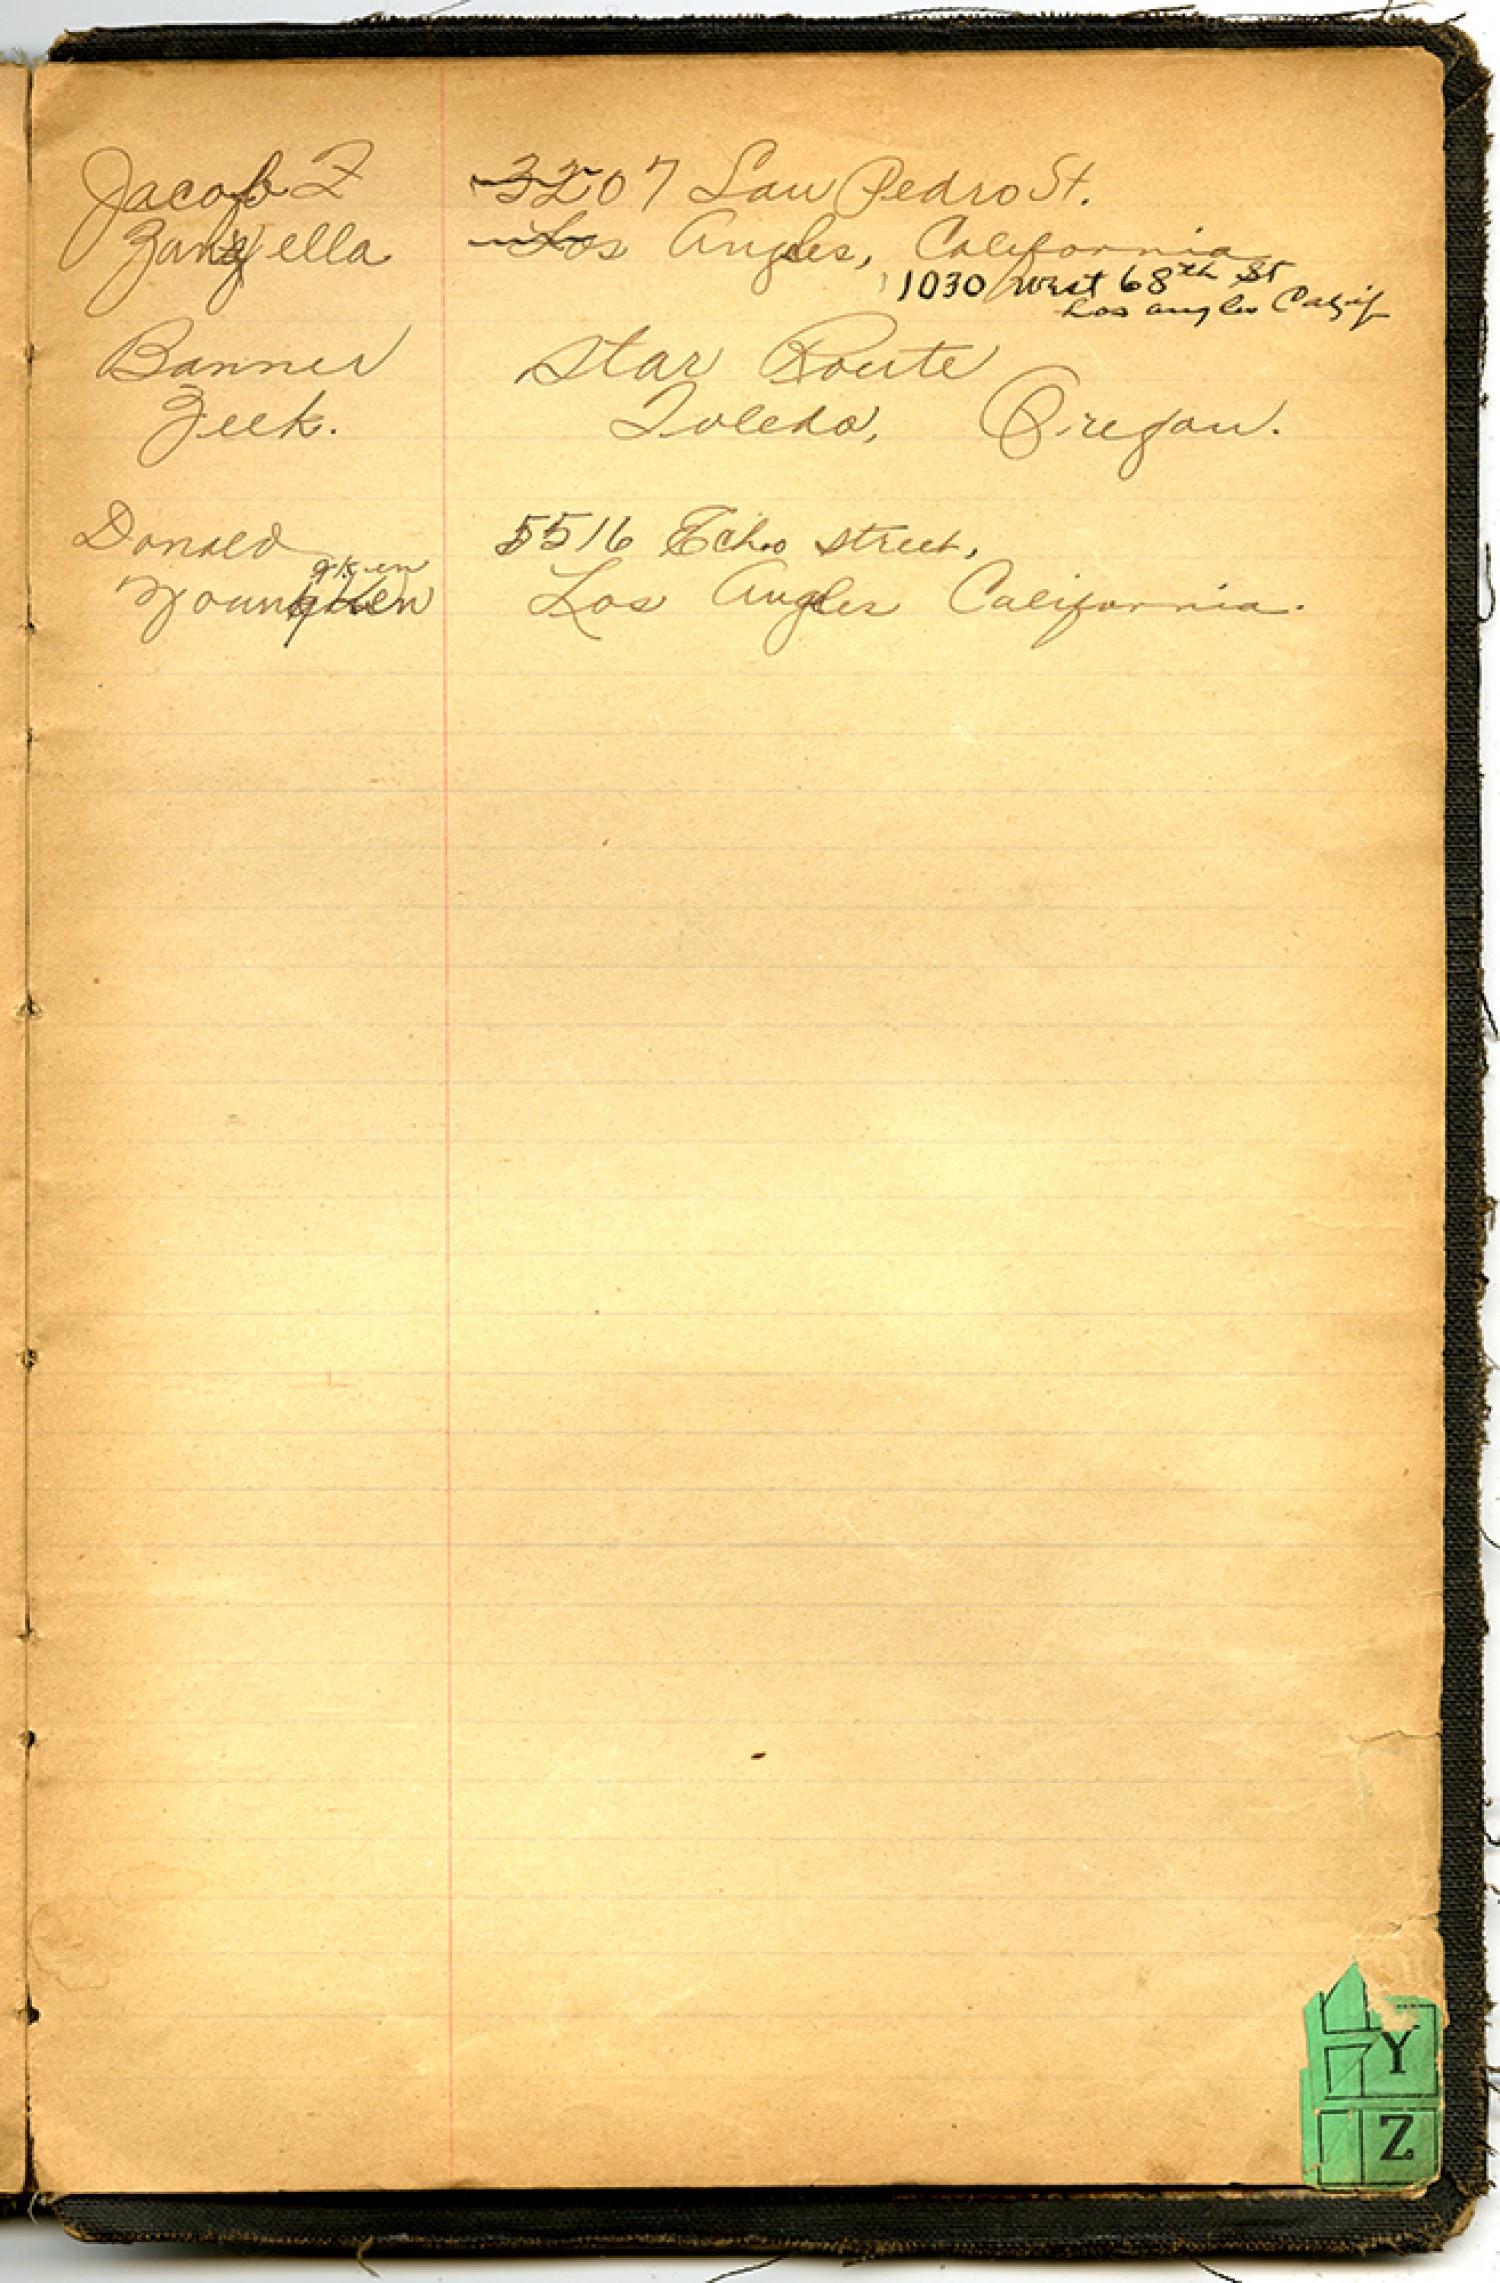 Jacob Z 3207 San Pedro St.
Zangella Los Angles, California
1030 West 68th St
Los angles Calif
Banner Star Route
Zeek. Toledo, Oregon.
Donald 5516 Echo street,
gken
Youngken Los Angles California.
Y
Z